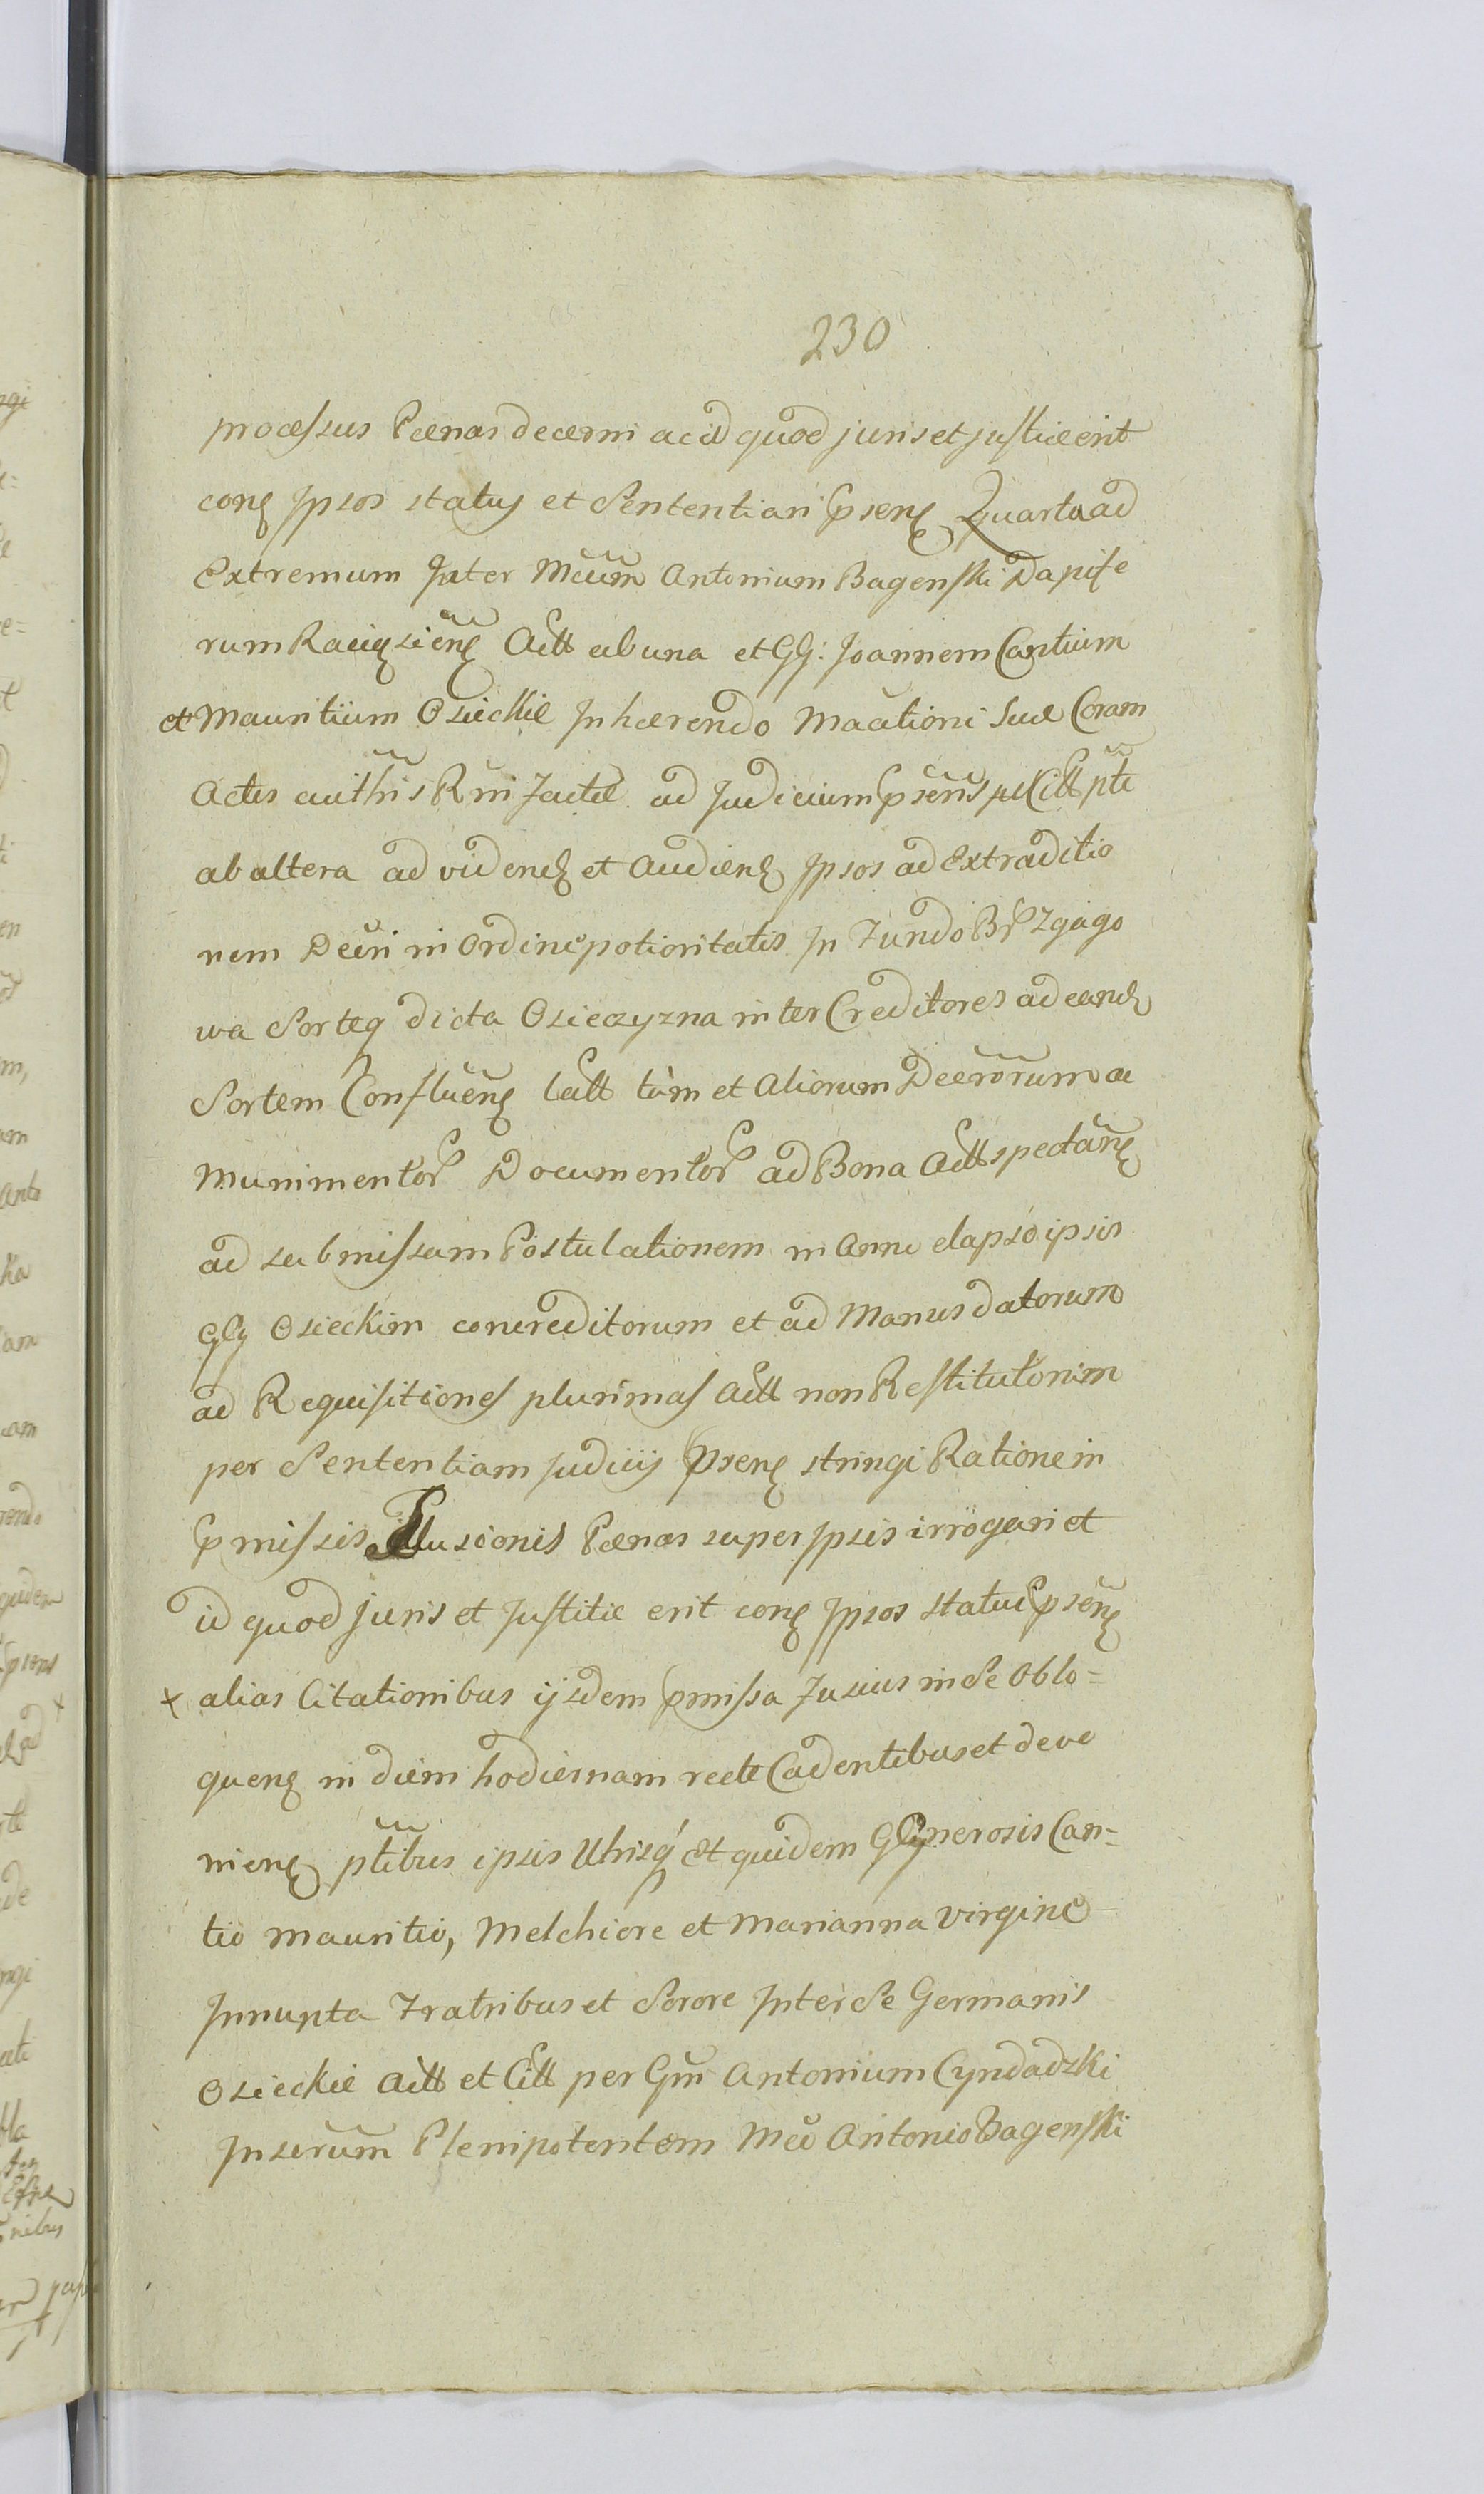 230
processus Pœnas decerni ac id quod juris et justiæ erit
conꝫ Ipsos status et Sententiari Prsenꝫ Quarta ad
Extremum Inter Mcum Antonium Bagenski Dapife
rum Raciąziēnꝫ Actt ab una et GG: Joannem Cantium
et Mauritium Osieckie Inhærendo Maationi Suæ Coram
Actis authis Rni factæ ad Judicium Prsens per Citt pte
ab altera ad videnꝫ et Audienꝫ Ipsos ad Extraditio
nem Decri in Ordine potioritatis In Fundo Br Zgago
wa Sorteq dicta Osieczyzna inter Creditores ad eandꝫ
Sortem Confluenꝫ latt tàm et Aliorum Decrorum ac
Munimentor Documentor ad Bona Actt spectanꝫ
ad submissam Postulationem in Anno elapso ipsis
GG Osieckim concreditorum et ad Manus datorum
ad Requisitiones plurimas Actt non Restitutorum
per Sententiam Judicij Prsenꝫ stringi Ratione in
Prmissis Illusionis Pœnas super Ipsis irrogari et
id quod Juris et Justitiæ erit conꝫ Ipsos statui Prsenꝫ
x alias Citationibus ijsdem Prmissa fusius in Se Oblo=
quenꝫ in diem hodiernam recte Cadentibus et deve
nienꝫ ptibus ipsis Utrisq Et quidem Generosis Can=
tio Mauritio, Melchiore et Marianna Virgine
Innupta Fratribus et Sorore Inter Se Germanis
Osieckie Actt et Citt per Gm Antonium Cyndadzki
Inserum Plenipotentem Mco Antonio Bagenski